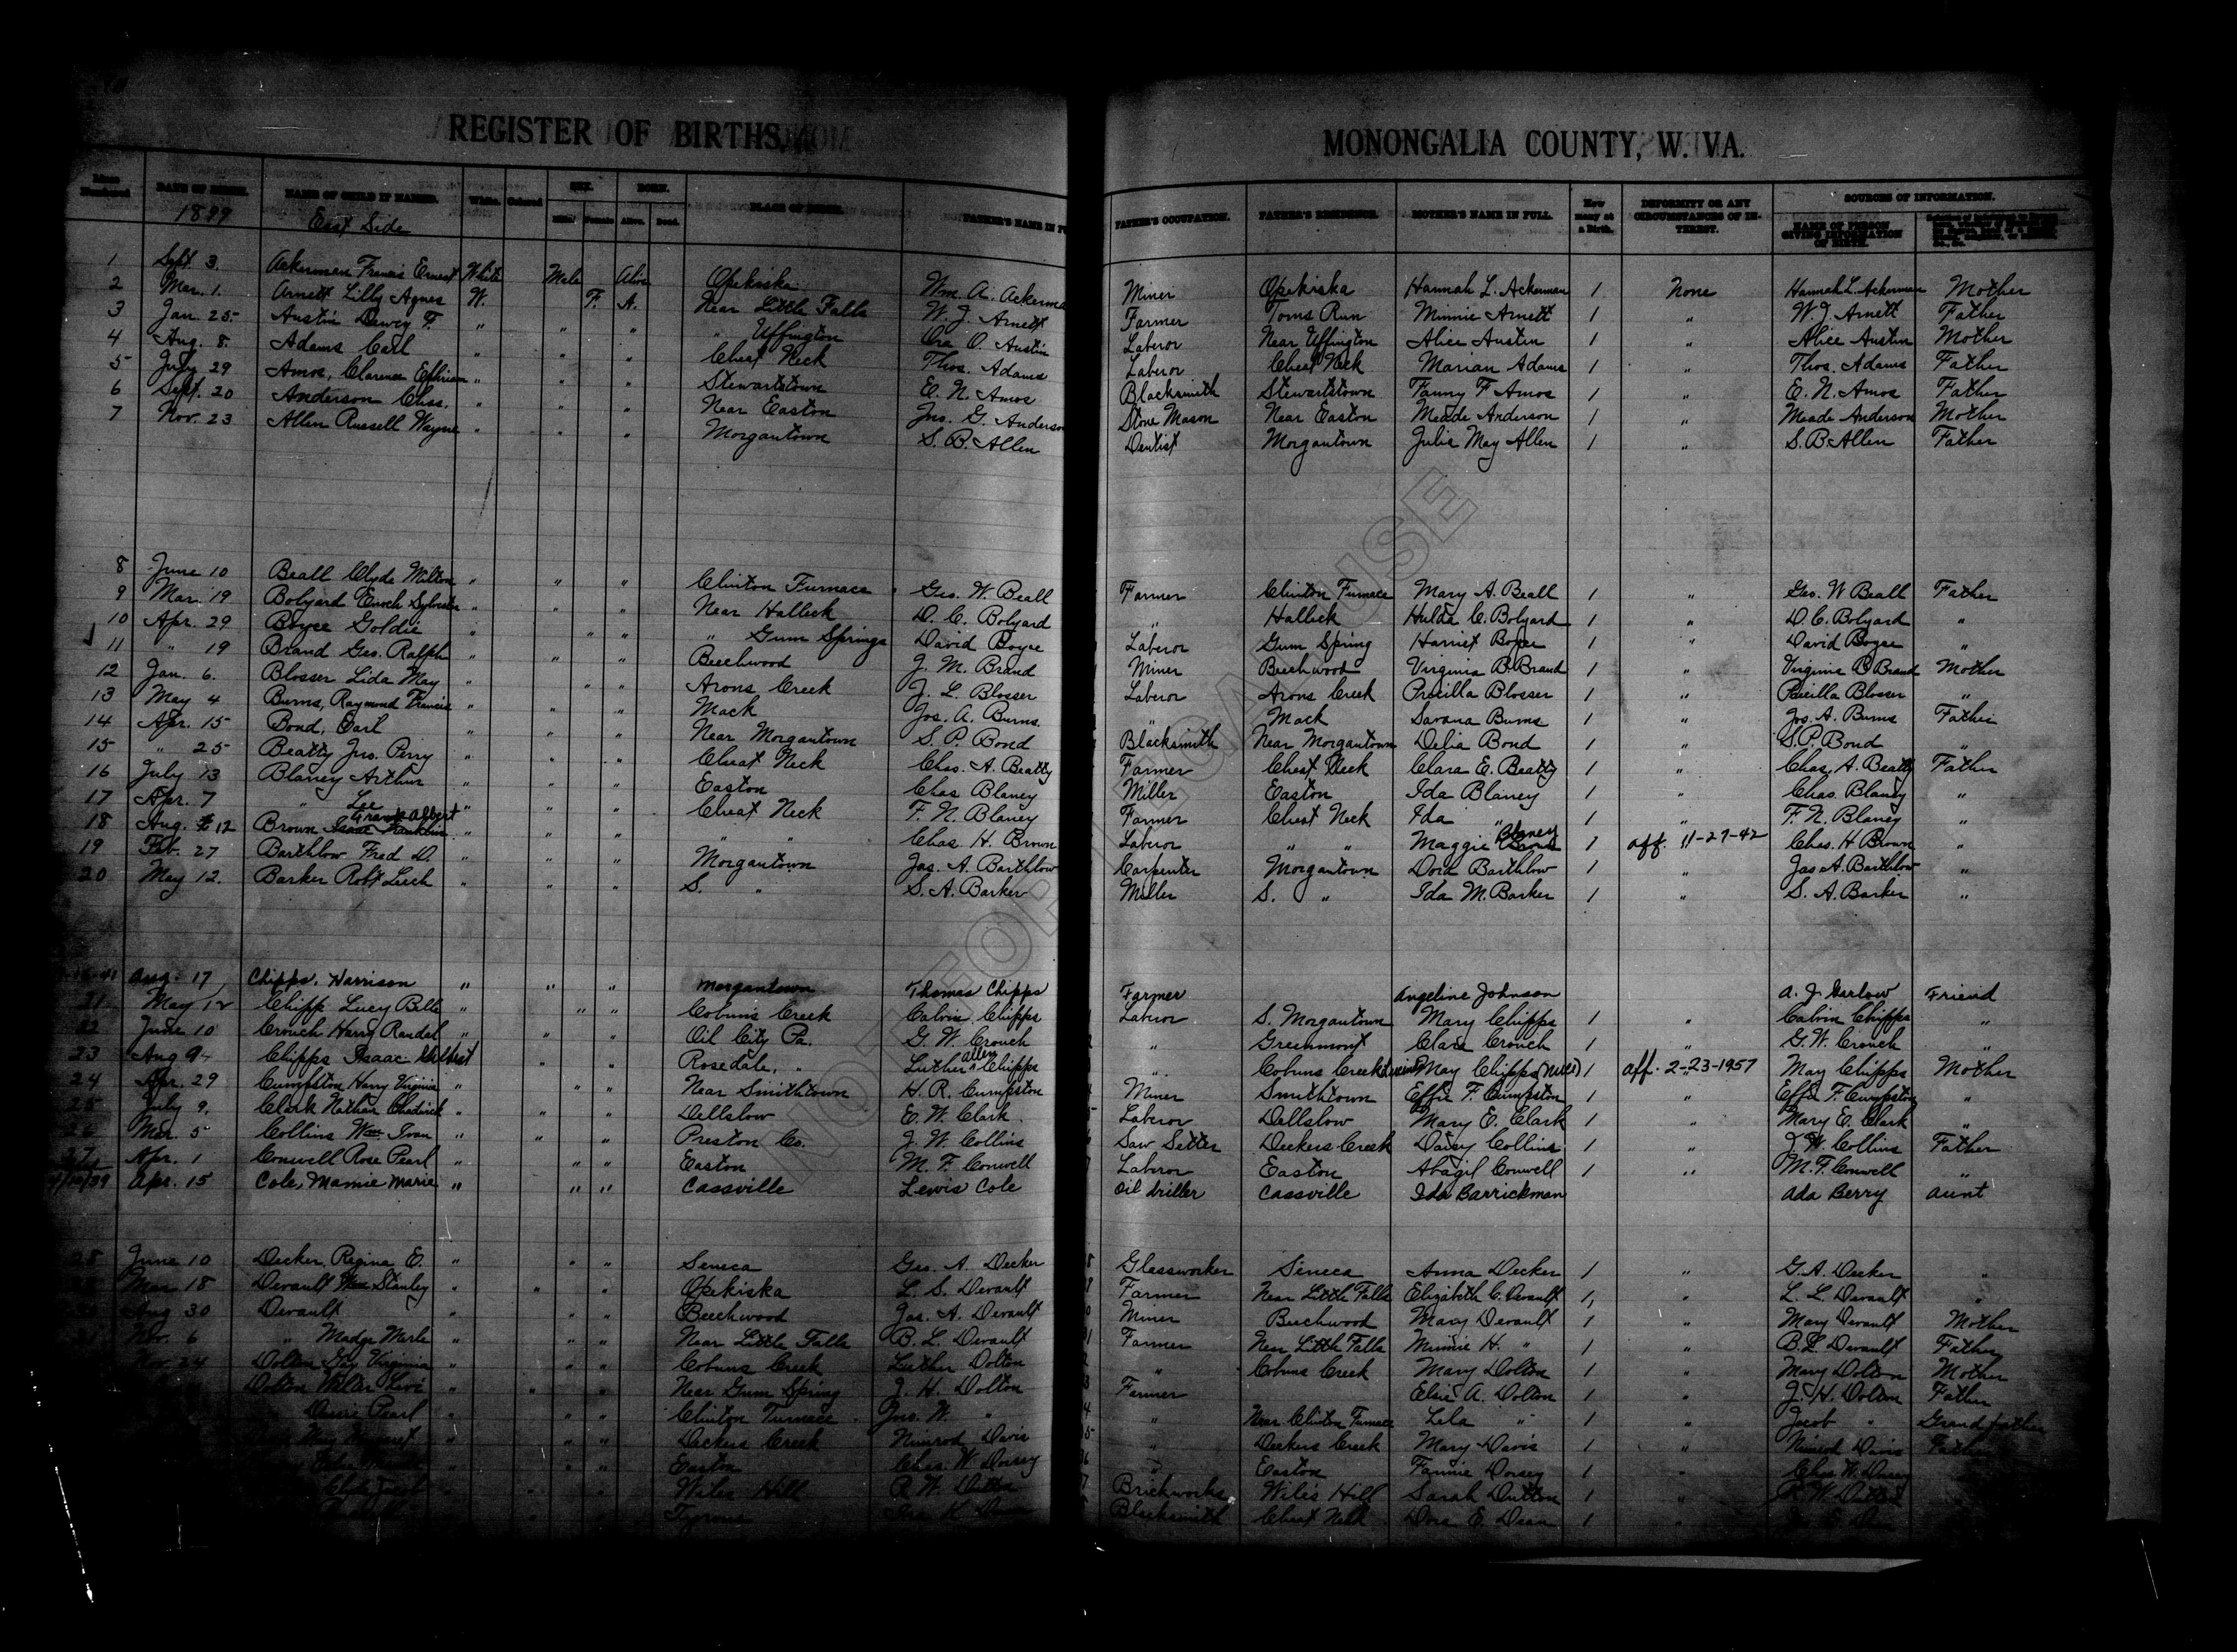 REGISTER OF BIRTHS,
MONONGALIA COUNTY, W. VA.
DATE OF BIRTH. NAME OF CHILD IF NAMED. White. Colored SEX. BORN. PLACE OF BIRTH. FATHER'S NAME IN
Male Female Alive. Dead.
FATHER'S OCCUPATION. FATHER'S RESIDENCE. MOTHER'S NAME IN FULL. How many at a Birth. DEFORMITY OR ANY CIRCUMSTANCES OF INTEREST. SOURCES OF INFORMATION.
NAME OF PERSON GIVING INFORMATION OF BIRTH.
1899 East Side
1 Sept. 3. Ackerman Francis Ernest White Male Alive Opekiska Wm. A. Ackerma Miner Opekiska Hannah L. Ackerman 1 None Hannah L. Ackerman Mother
2 Mar. 1. Arnett Lilly Agnes W. F. A. Near Little Falls W. J. Arnett Farmer Toms Run Minnie Arnett 1 " W. J. Arnett Father
3 Jan. 25. Austin Dewey F. " " " " Uffington Ora O. Austin Laberor Near Uffington Alice Austin 1 " Alice Austin Mother
4 Aug. 8. Adams Carl " " " Cheat Neck Thos. Adams Laberor Cheat Neck Marian Adams 1 " Thos. Adams Father
5 July 29 Amos, Clarence Ephriam " " " Stewartstown E. N. Amos Blacksmith Stewartstown Fanny F Amos 1 " E. N. Amos Father
6 Sept. 20 Anderson Chas. " " " Near Easton Jno. G. Anderson Stone Mason Near Easton Meade Anderson 1 " Meade Anderson Mother
7 Nov. 23 Allen Russell Wayne " " " Morgantown S. B. Allen Dentist Morgantown Julia May Allen 1 " S. B. Allen Father
8 June 10 Beall Clyde Milton " " " Clinton Furnace Geo. W. Beall Farmer Clinton Furnace Mary A. Beall 1 " Geo. W Beall Father
9 Mar. 19 Bolyard Enoch Sylvester " " " Near Halleck D. C. Bolyard " Halleck Hulda C. Bolyard 1 " D. C. Bolyard "
10 Apr. 29 Boyce Goldie " " " " Gum Springs David Boyce Laberor Gum Spring Harriet Boyce 1 " David Boyce "
11 " 19 Brand Geo. Ralph " " " Beechwood J. M. Brand Miner Beechwood Virginia B. Brand 1 " Virginia B Brand Mother
12 Jan. 6. Blosser Lida May " " " Arons Creek J. L. Blosser Laberor Arons Creek Precilla Blosser 1 " Precilla Blosser "
13 May 4 Burns, Raymond Francis " " " Mack Jos. A. Burns. " Mack Savana Burns 1 " Jos. A. Burns Father
14 Apr. 15 Bond, Earl " " " Near Morgantown S. P. Bond Blacksmith Near Morgantown Delia Bond 1 " S. P. Bond "
15 " 25 Beatty Jno. Perry " " " Cheat Neck Chas. A. Beatty Farmer Cheat Neck Clara E. Beatty 1 " Chas. A. Beatty Father
16 July 13 Blaney Arthur " " " Easton Chas Blaney Miller Easton Ida Blaney 1 " Chas. Blaney "
17 Apr. 7 " Lee " " " Cheat Neck F. N. Blaney Farmer Cheat Neck Ida " 1 " F. N. Blaney "
18 Aug. 12 Brown Isaac Franklin Frank Albert " " " " " Chas H. Brown Laberor " " Maggie Brown Blaney 1 aff. 11-27-42 Chas. H Brown "
19 Feb. 27 Barthlow Fred D. " " " Morgantown Jas. A. Barthlow Carpenter Morgantown Dora Barthlow 1 " Jas A. Barthlow "
20 May 12. Barker Robt Leech " " " S. " S. A. Barker Miller S. " Ida M. Barker 1 " S. A. Barker "
Aug. 17 Chipps, Harrison " " " Morgantown Thomas Chipps Farmer Angeline Johnson A. J. Garlow Friend
21 May 12 Chipp Lucy Belle " " " Coburns Creek Calvin Chipps Laberor S. Morgantown Mary Chipps 1 " Calvin Chipps "
22 June 10 Crouch Harry Randal " " " Oil City Pa. G. W. Crouch " Greenmont Clara Crouch 1 " G. W. Crouch "
23 Aug 9 Chipps Isaac Gilbert " " Rosedale, " Luther Allen Chipps " Coburns Creek May Chipps 1 aff. 2-23-1957 May Chipps Mother
24 Apr. 29 Cumpston Harry Virginia " " " Near Smithtown H. R. Cumpston Miner Smithtown Effie F. Cumpston 1 Effie F. Cumpston "
25 July 9. Clark Nathan Chadwick " " " Dellslow E. W. Clark Laberor Dellslow Mary E. Clark 1 " Mary E. Clark "
26 Mar. 5 Collins Wm Ivan " " " Preston Co. J. W. Collins Saw Setter Deckers Creek Daisy Collins 1 " J. W. Collins Father
27 Apr. 1 Conwell Rose Pearl " " " Easton M. F. Conwell Laberor Easton Abagil Conwell 1 " M. F. Conwell "
Apr. 15 Cole, Mamie Marie " " " Cassville Lewis Cole Oil driller Cassville Ida Barrickman Ada Berry Aunt
28 June 10 Decker, Regina E. " " " Seneca Geo. A. Decker Glassworker Seneca Anna Decker 1 " G. A. Decker "
Mar 18 Devault Wm Stanley " " " Opekiska L. S. Devault Farmer Near Little Falls Elizabeth C. Devault 1 " L. L. Devault "
Aug 30 Devault " " " Beechwood Jas. A. Devault Miner Beechwood Mary Devault 1 " Mary Devault Mother
Nov. 6 " Madge Merle " " " Near Little Falls B. L. Devault Farmer Near Little Falls Minnie H. " 1 " B. L. Devault Father
Nov. 24 Dolton Gay Virginia " " " Coburns Creek Luther Dolton " Coburns Creek Mary Dolton 1 " Mary Dolton Mother
Dolton Walter Levi " " " Near Gum Spring J. H. Dolton Farmer Elsie A. Dolton 1 " J. H. Dolton Father
Pearl " " " Clinton Furnace Jno. W. " " Near Clinton Furnace Lela " 1 " Jacob " Grand father
May Margaret " " " Deckers Creek Nimrod Davis " Deckers Creek Mary Davis 1 " Nimrod Davis Father
" " " Easton Chas. W Dorsey " Easton Fannie Dorsey 1 " Chas. W. Dorsey
Wiles Hill R. W. Dutton Brickworks Wiles Hill Sarah Dutton 1 " R. W. Dutton
Tyrone Ira K. Blacksmith Cheat Neck Dora E. Dean 1 "
NOT FOR LEGAL USE